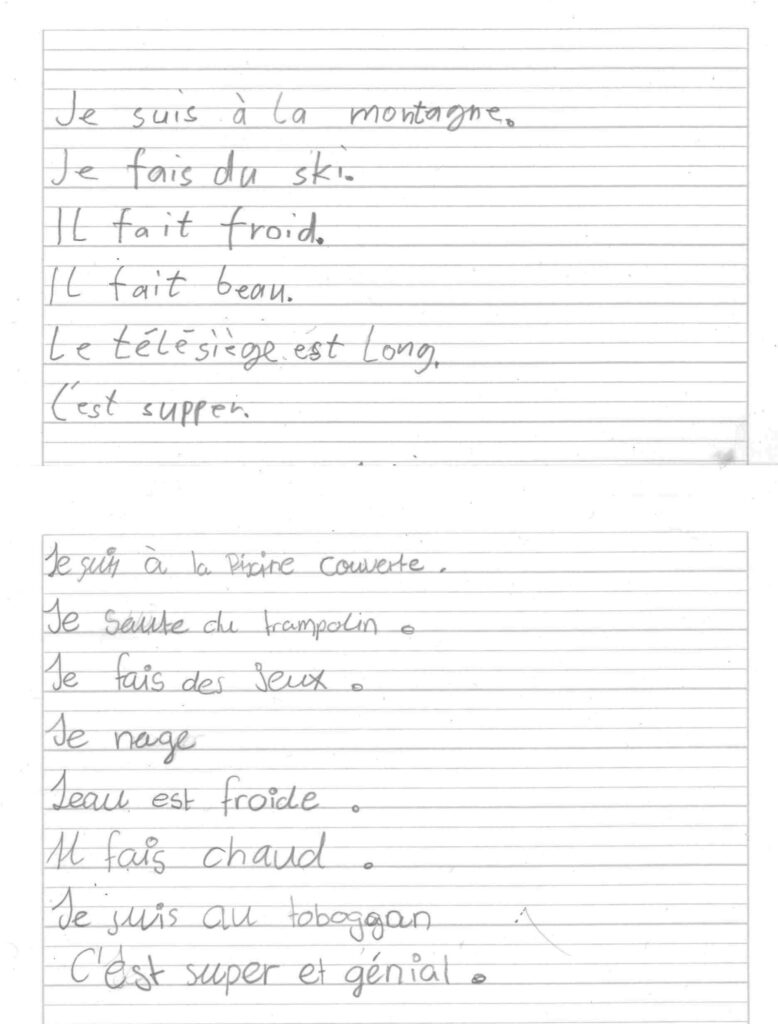 Je suis à la montagne.
Je fais du ski.
Il fait froid.
Il fait beau.
Le télésiège est long.
C'est supper.
Je suis à la Picine couverte.
Je saute du trampolin.
Je fais des jeux.
Je nage
Leau est froide.
Il fais chaud.
Je suis au toboggan
C'est super et génial.